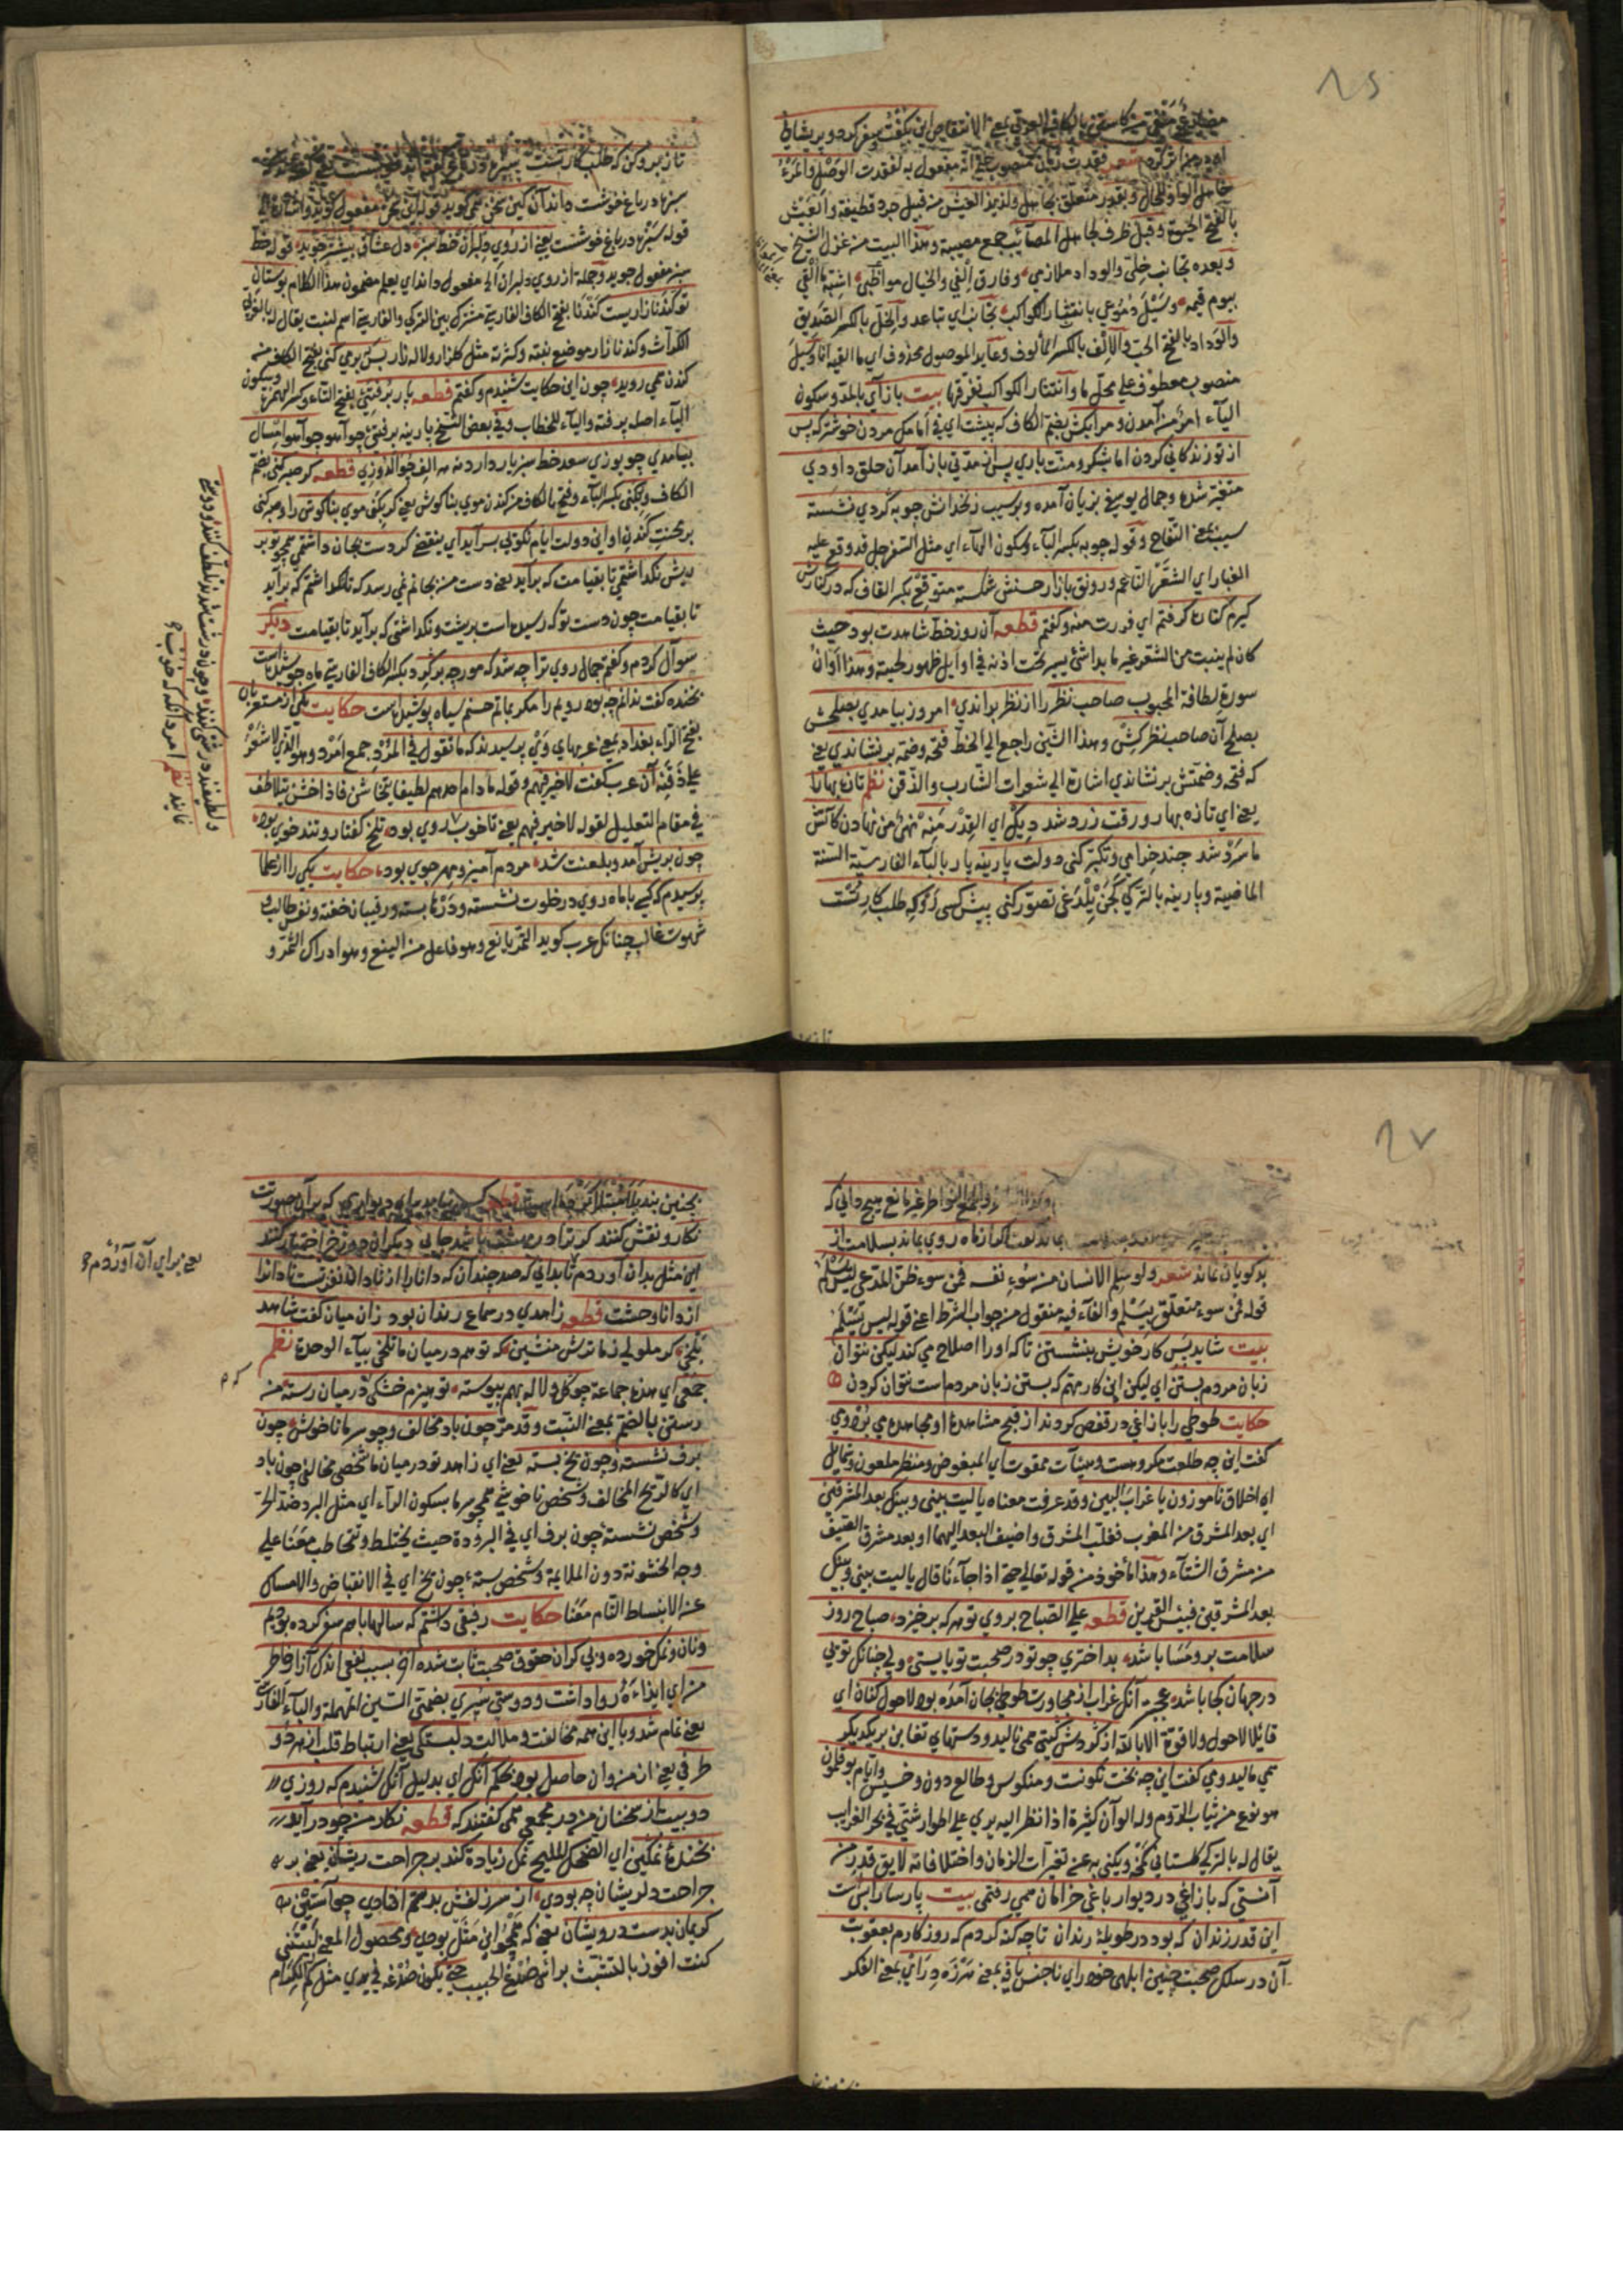 ٨٥
اوده ديدار كردم شعر فقدت زمان منصوب على انه مفعول به لفقدت الوصل والمرء
جاهل الواو للحال وبقدر متعلق بجاهل ولذيذ العيش من قبيل جرد قطيفة والعيش
بالفتح الحيوة وقبل ظرف لجاهل المصائب جمع مصيبة وهذا البيت من غزل الشيخ
وبعده تجانب خلتي والوداد ملازمي وفارق الفي والخيال مواظبي اشبه ما القى
بيوم قيمه وسيل دموعي بانتثار الكواكب تجانب اي تباعد والخل بالكسر الصديق
والوداد بالفتح الحب والالف بالكسر المألوف وعايد الموصول محذوف اي ما القيه انا وسيل
منصوب معطوف على محل ما وانتثار الكواكب تفرقها بيت باز آي بالمد وسكون
الياء امر من آمدن ومرا بكش بضم الكاف كه پيشت اي في امامك مردن خوشتر كه پس
از تو زندكاني كردن اما بشكر ومنت باري پس از مدتي باز آمد آن حلق داودي
متغير شده وجمال يوسفي بزيان آمده وبر سيب زنخدانش چو به كردي نشسته
سيب بمعنى التفاح وقوله چو به بكسر الباء وسكون الهاء اي مثل السفرجل قد وقع عليه
الغبار اي الشعر الناعم ورونق بازار حسنش شكسته متوقع بكسر القاف كه در كنارش
كيرم كناره كرفتم اي فررت منه وكفتم قطعه آن روز خط شاهدت بود حيث
كان لم ينبت من الشعر غير ما بدا شئ يسير تحت اذنه في اوايل ظهور لحيته وهذا اوان
سورة لطافة المحبوب صاحب نظر را از نظر براندي امروز بيامدي بصلحش
بصلح آن صاحب نظر كش وهذا الشين راجع الى الخط فتحه وضمه برنشاندي يعني
كه فتحه وضمتش برنشاندي اشارة الى شعرات الشارب والذقن نظم تازه بهارا
يعني اي تازه بهار ورقت زرد شد ديك اي القدر منه نهي من نهادن كاتش
ما سرد شد چند خرامي وتكبر كني دولت پارينه پار بالباء الفارسية السنة
الماضية وپارينه بالتركي كچن ييلدغي تصور كني پيش كسي رو كه طلب كار تست
تاز بر وكن كه طلب كار تست
سبزه در باغ خوشست داند آن كين سخن همي كويد قوله اين سخن مفعول كويد واشارة الى
قوله سبزه در باغ خوشست يعني از روي دلبران خط سبز دل عشاق بيشتر جويد قوله خط
سبز مفعول جويد وجمله از روي دلبران الى مفعول داند اي يعلم مضمون هذا الكلام بوستان
تو كندنا زاريست كندنا بفتح الكاف الفارسية مشترك بين التركي والفارسية اسم لنبت يقال له بالعربي
الكراث وكندنا زار موضع نبته وكثرته مثل كلزار ولاله زار بس كه بر مي كني بفتح الكاف من
كندن مي رويد چون اين حكايت شنيدم وكفتم قطعه پار برفتئ بفتح التاء وكسر الهمزة وسكون
الياء اصله برفته والياء للخطاب وفي بعض النسخ پارينه برفتئ چو آهو چو آهو امسال
بيامدي چو يوزي سعد خط سبز يار دارد نه هر الف جوالدوزي قطعه كر صبر كني بضم
الكاف ولكني بكسر الباء وفتح الكاف من كندن موي بناكوش يعني كر بكني موي بناكوش را وصبر كني
بر محنت كندن او اين دولت ايام نكوئي بسر آيد اي ينقضي كر دست بجان داشتمي همچو تو بر
ريش نكذاشتمي تا بقيامت كه برآيد يعني دست من بجانم نمي رسد كه نكذاشتم كه برآيد
تا بقيامت چون دست تو كه رسيده است بريشت ونكذاشتي كه برآيد تا بقيامت ديكر
سوآل كردم وكفتم جمال روي ترا چه شد كه مورچه بر كرد بكسر الكاف الفارسية ماه جوشيده است
بخنده كفت ندانم چه بود رويم را مكر بماتم حسنم سياه پوشيده است حكايت يكي از مستعربان
بفتح الراء بغداد بمعنى عربهاي وي پرسيدند كه ما تقول في المرد جمع امرد وهو الذي لا شعر
على ذقنه آن عرب كفت لا خير فيهم وقوله ما دام احدهم لطيفا يتخاشن فاذا خشن يتلاطف
في مقام التعليل لقوله لا خير فيهم يعني تا خوب روي بود تلخ كفتار وتند خوي بود
چون بريش آمد وبلعنت شد مردم آميز ومهر جوي بود حكايت يكي را از علما
پرسيدم كه كسي با ماه روي در خلوت نشسته ودرها بسته ورفيقان خفته ونفس طالب و
شهوت غالب چنانكه عرب كويد التمر يانع وهو فاعل من الينع وهو ادراك الثمر و
ولطيفند درشتي كنند وچون درشت شدند تلطف كنند ودوستي
نمايند نظم امرد آنكه كه خوب
٨٧
بدكويان نماند شعر ولو سلم الانسان من سوء نفسه فمن سوء ظن المدعي ليس يسلم
قوله فمن سوء متعلق بيسلم والفاء فيه منقول من جواب الشرط اعني قوله ليس يسلم
بيت شايد پس كار خويش بنشستن تا كه او را اصلاح مي كند ليكن نتوان
زبان مردم بستن اي ليكن اين كار مهم كه بستن زبان مردم است نتوان كردن
حكايت طوطي را با زاغي در قفص كردند از قبح مشاهده او مجاهده مي برد و مي
كفت اين چه طلعت مكروهست وهيئات ممقوت اي المبغوض ومنظر ملعون وشمايل
اي اخلاق ناموزون يا غراب البين وقد عرفت معناه يا ليت بيني وبينك بعد المشرقين
اي بعد المشرق من المغرب فغلب المشرق واضيف البعد اليهما او بعد مشرق الصيف
من مشرق الشتاء وهذا المأخوذ من قوله تعالى حتى اذا جاءنا قال يا ليت بيني وبينك
بعد المشرقين فبئس القرين قطعه على الصباح بروي تو هر كه برخيزد صباح روز
سلامت برو مسا باشد بد اختري چو تو در صحبت تو بايستي ولي چنانكه توئي
در جهان كجا باشد عجبتر آنكه غراب از مجاورت طوطي بجان آمده بود لاحول كنان اي
قائلا لا حول ولا قوة الا بالله از كردش كيتي همي ناليد ودستهاي تغابن بر يكديكر
همي ماليد ومي كفت اين چه بخت نكونست ومنكوس وطالع دون وخسيس وايام بوقلمون
هو نوع من ثياب الروم وله الوان كثيرة اذا نظر اليه يري على اطوار شتى في بحر الغرايب
يقال له بالتركي كلستاني كمخا ويكنى به عن تغيرات الزمان واختلافاته لايق قدر من
آنستي كه با زاغي در ديوار باغي خرامان همي رفتمي بيت پارسا را بس است
اين قدر زندان كه بود در طويلهٔ رندان تا چه كنه كردم كه روزكارم بعقوبت
آن در سلك صحبت چنين ابلهي خود راي ناجنس يافه بمعنى هرزه دراي بمعنى الفكر
بچنين بند بلا مبتلا كرده است قطعه كس نيايد بپاي ديواري كه بران صورتت
نكار ونقش كنند كر ترا در بهشت باشد جاي ديكران دوزخ اختيار كنند
اين مثل بدان آوردم تا بداني كه صد چندان كه دانا را از نادان نفرتست نادان را
از دانا وحشت قطعه زاهدي در سماع رندان بود زان ميان كفت شاهد
بلخي كر ملولي ز ما ترش منشين كه تو هم در ميان ما تلخي بياء الوحدة نظم
جمعي اي هذه جماعة چو كل ولاله بهم پيوسته تو هيزم خشكي در ميان رسته من
رستن بالضم بمعنى النبت وقد مر چون باد مخالف وچو سرما ناخوش چون
برف نشسته وچون يخ بسته يعني اي زاهد تو در ميان ما شخصي مخالفي چون باد
اي كالريح المخالف وشخص ناخوشي همچو سرما بسكون الراء اي مثل البرد ضد الحر
وشخص نشسته چون برف اي في البرودة حيث يختلط وتخاطب معنا على
وجه الخشونة دون الملايمة وشخص بسته چون يخ اي في الانقباض والامساك
عن الانبساط التام معنا حكايت رفيقي داشتم كه سالها باهم سفر كرده بوديم
ونان ونمك خورده وبي كران حقوق صحبت ثابت شده آخر بسبب نفعي اندك آزار خاطر
من اي ايذاءه روا داشت ودوستي سپري بضمتي السين المهملة والباء الفارسي
يعني تمام شد وبا اين همه مخالفت وملالت دلبستكي يعني ارتباط قلب از هر دو
طرف يعني از من وان حاصل بود بحكم آنكه اي بدليل آنكه شنيدم كه روزي
دو بيت از سخنان من در مجمعي همي كفتند كه قطعه نكار من چو در آيد
بخندهٔ نمكين اي الضحك المليح نمك زيادة كند بر جراحت ريشان يعني بر
جراحت دلريشان چه بودي از سر زلفش بدستم افتادي چو آستين
كريمان بدست درويشان يعني كه همچو اين مثل بودي ومحصول المعنى ليتني
كنت افوز بالتشبث براس صدغ الحبيب حتى يكون صدغه في يدي مثل كم الكرام
يعني براي آن آوردم